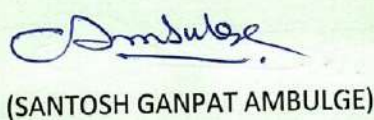 Ambulge
(SANTOSH GANPAT AMBULGE)